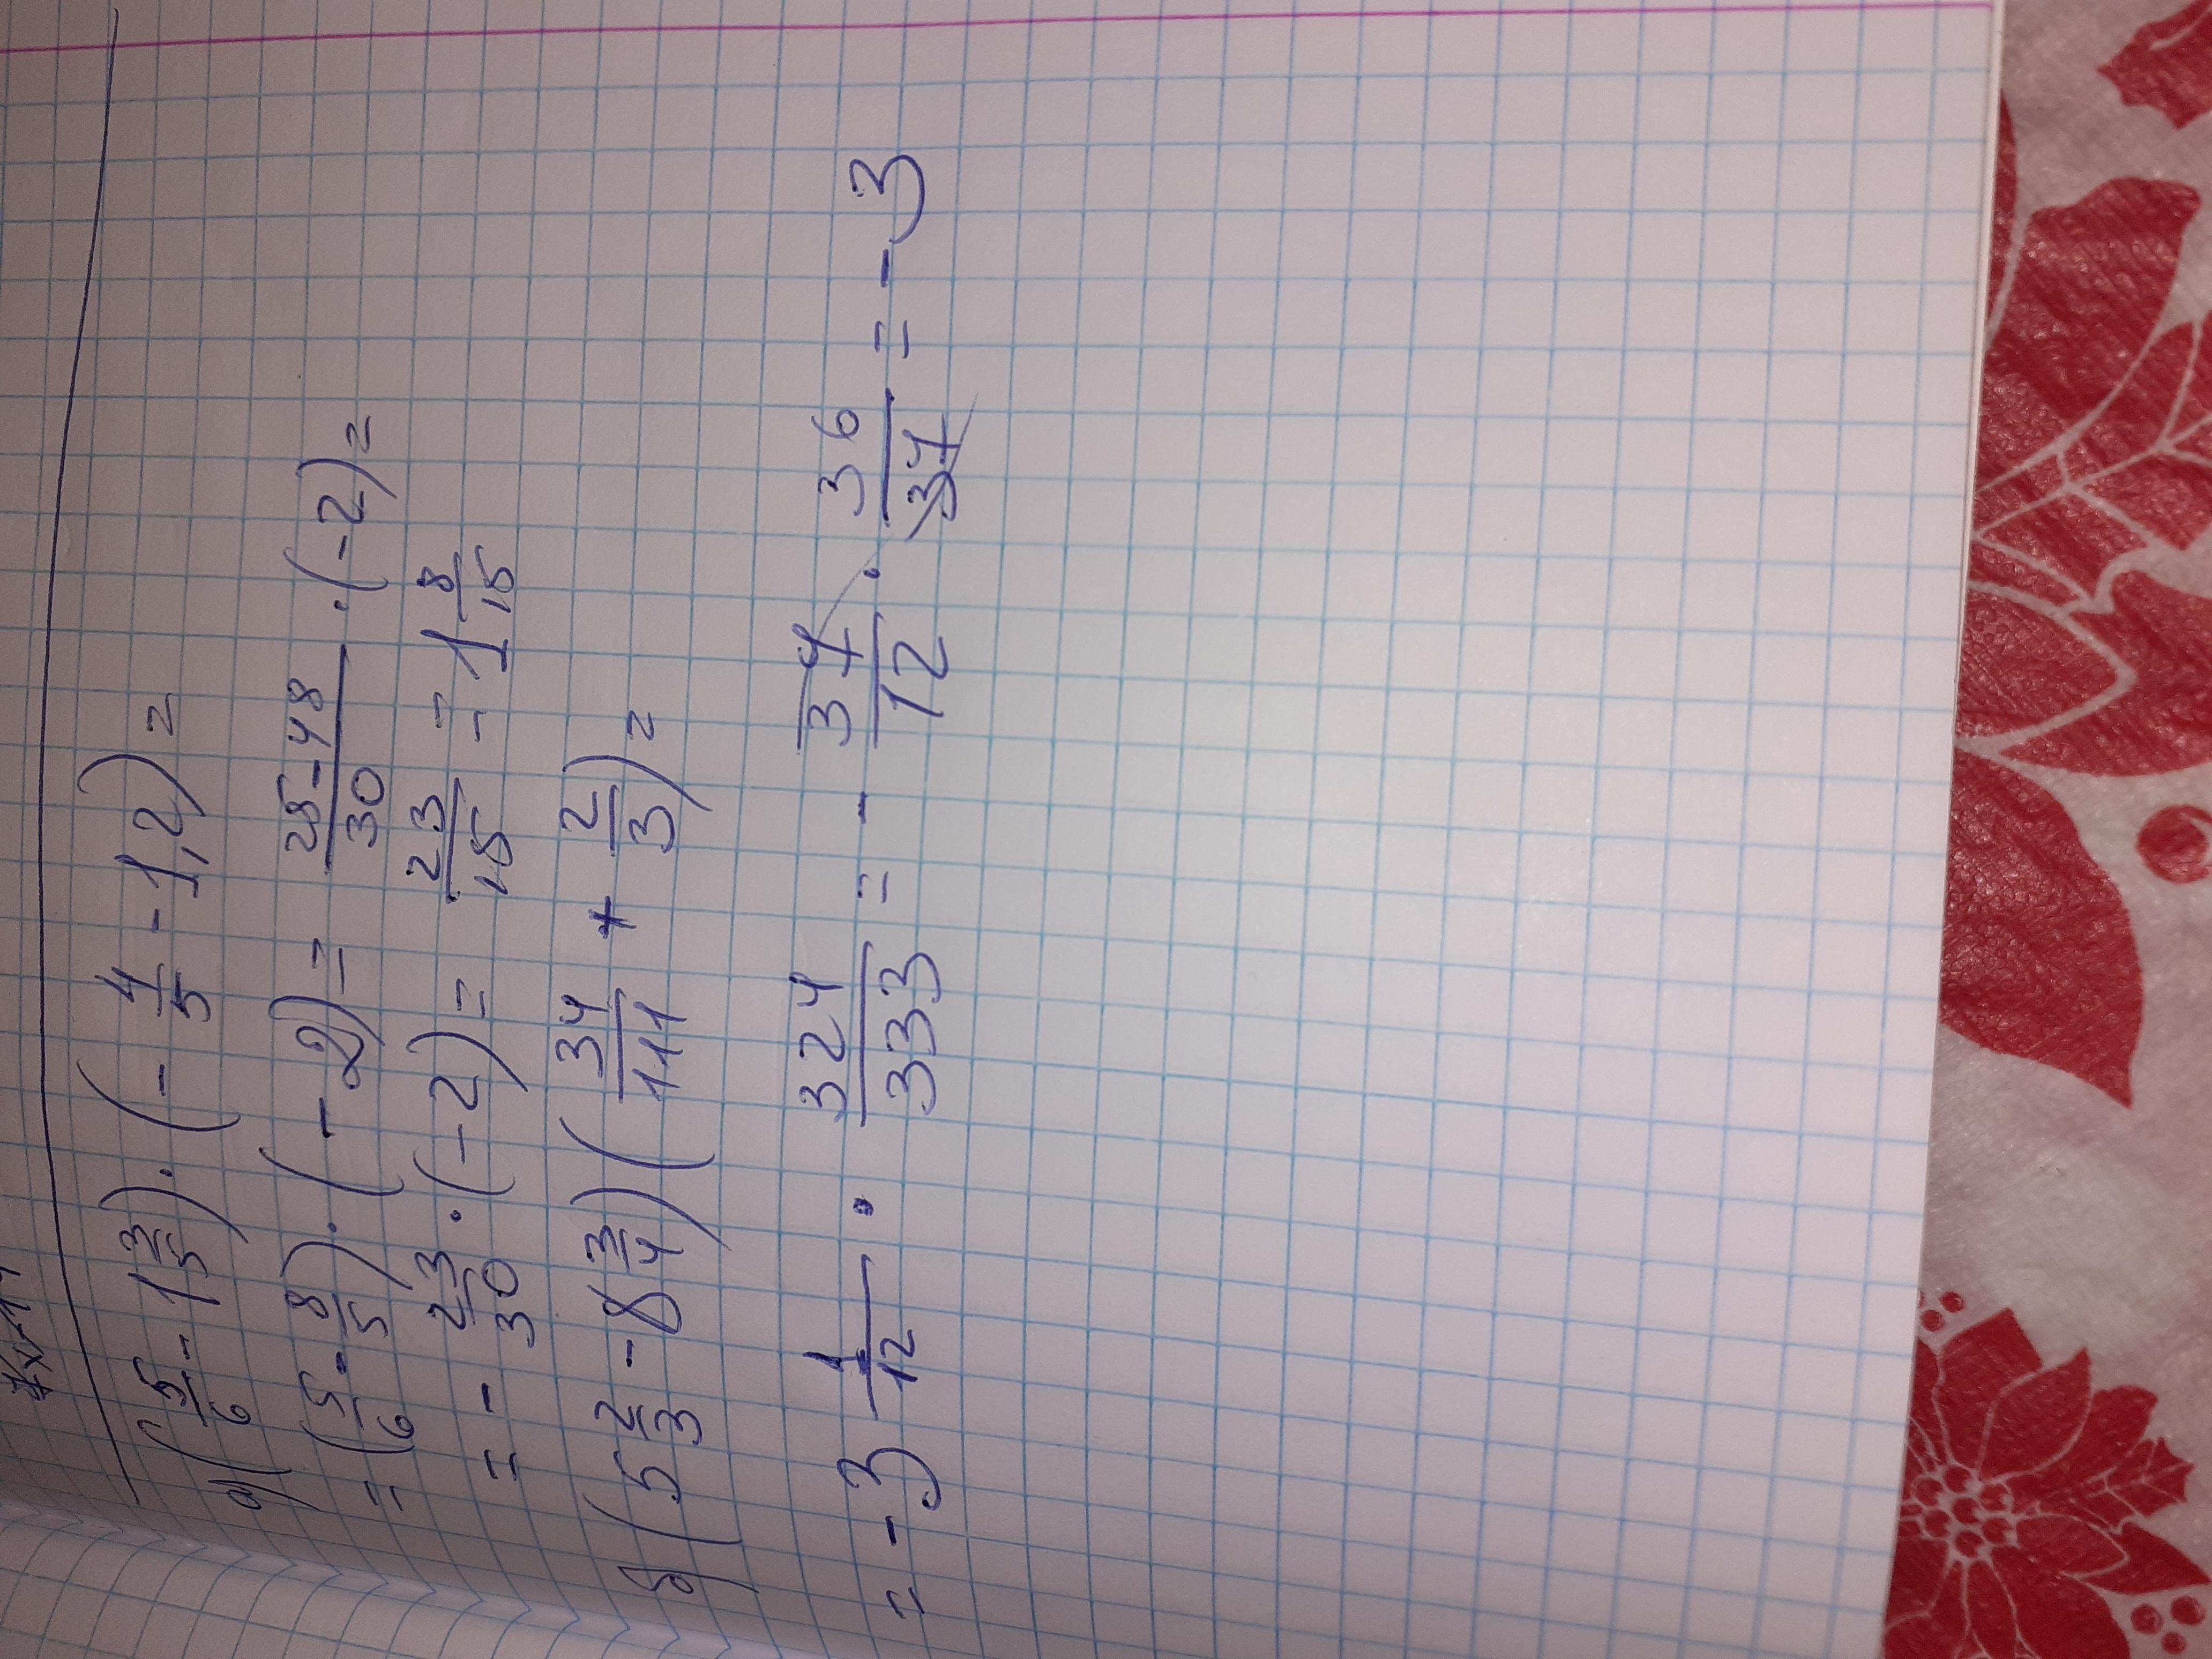 а) (5/6 - 1 3/5) · (- 4/5 - 1,2) =
= (5/6 - 8/5) · (-2) = 25-48/30 · (-2) =
= - 23/30 · (-2) = 23/15 = 1 8/15
б) (5 2/3 - 8 3/4) (34/111 + 2/3) =
= -3 1/12 · 324/333 = - 37/12 · 36/37 = -3